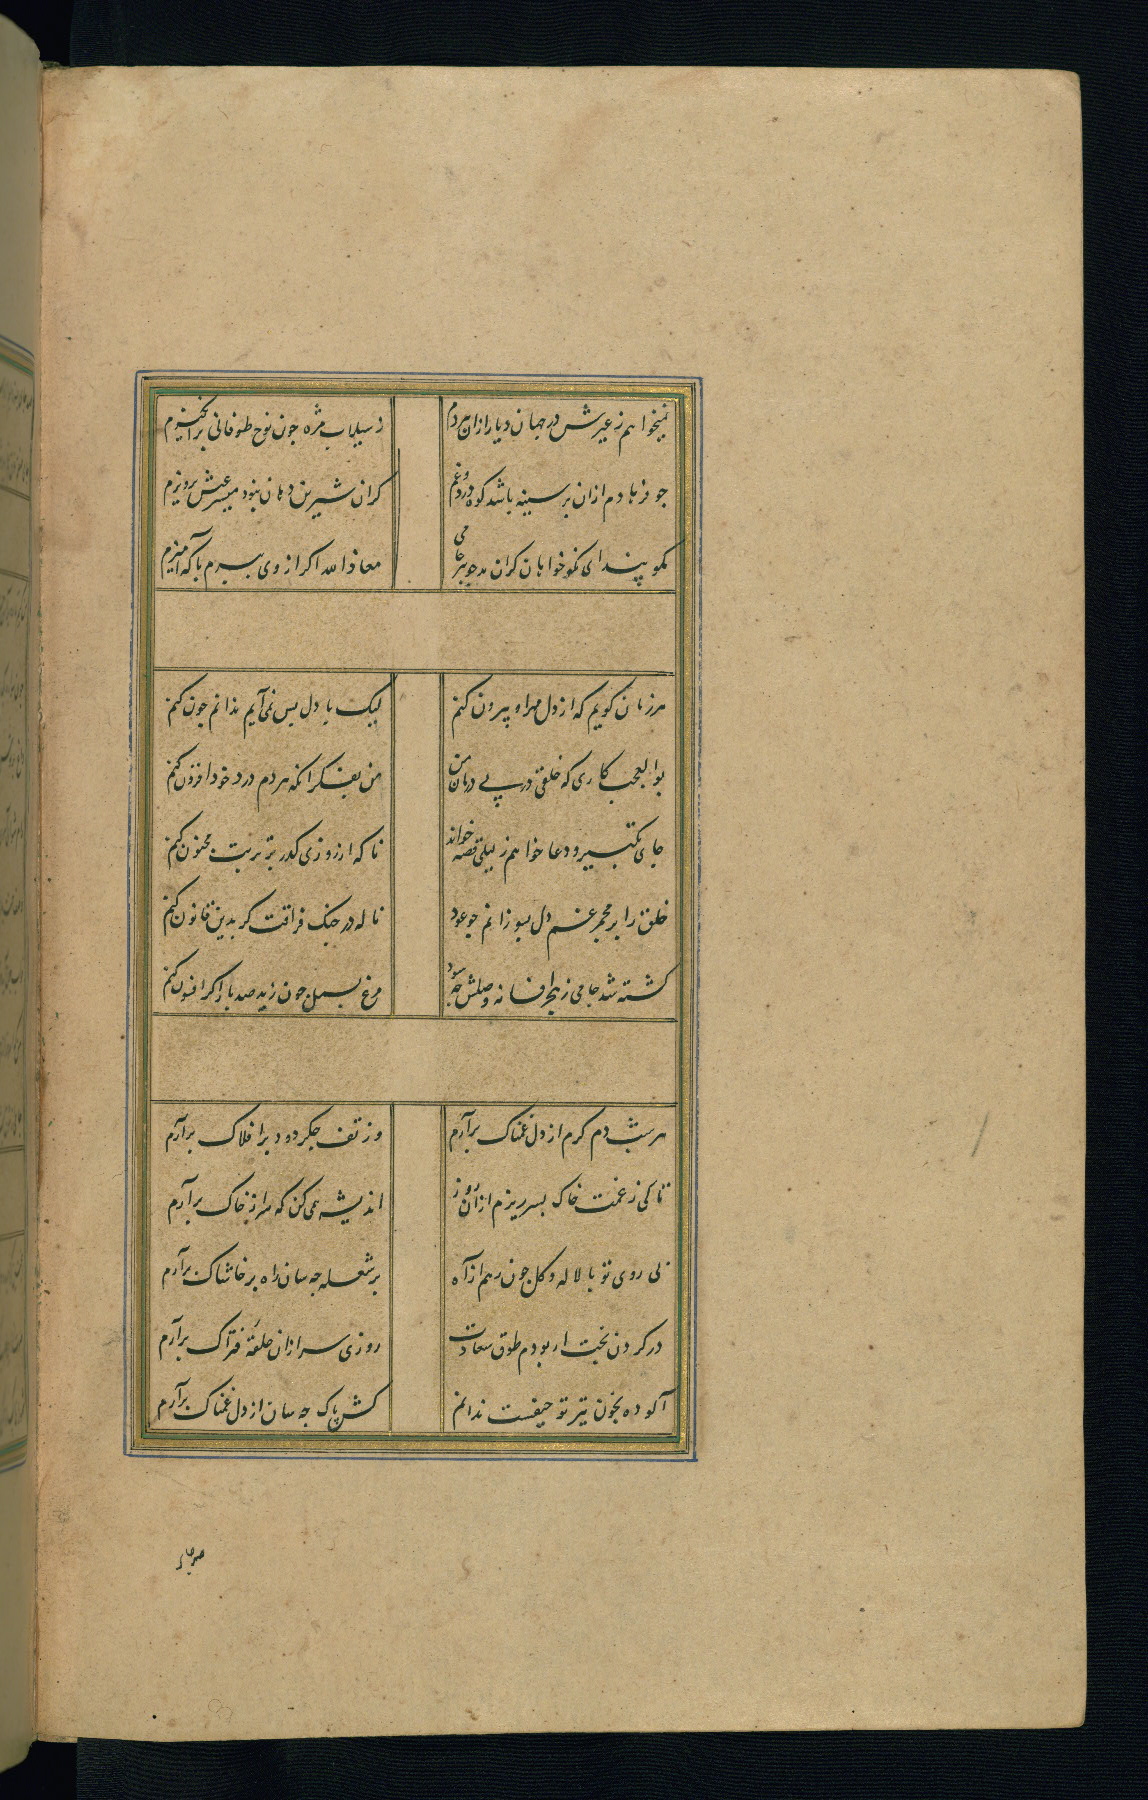 نمیخواهم ز غیرش در جهان دیار ازان هردم
ز سیلاب مژه جون نوح طوفانی برانگیزم
جو فرهادم ازان بر سینه باشد کوه درد و غم
کزان شیرین دهان نبود میسر عیش پرویزم
مکو پند ای نکوخواهان کزان مه جامی
معاذالله اکر از وی ببرم با که آمیزم
هر زمان کویم که از دل مهر او بیرون کنم
لیک با دل بس نمی آیم ندانم جون کنم
بوالعجب کاری که خلقی در پی درمان من
من بفکر آنکه هر دم درد خود افزون کنم
جای تکبیر و دعا خواهم ز لیلی قصه خواند
تا که ار روزی کذر بر تربت مجنون کنم
خلق را بر مجمر غم دل بسوزانم جو عود
ناله در جنک فراقت کر بدین قانون کنم
کشته شد جامی ز هجر افسانه وصلش جه سود
مرغ بسمل جون زید صد بار اکر افسون کنم
هر شب دم کرم از دل غمناک برآرم
وز تف جکر دود بر افلاک برآرم
تا کی ز غمت خاک بسر ریزم ازان روز
اندیشه نمی کن که سر از خاک برآرم
بی روی تو با لاله و کل جون رهم از آه
بر شعله جه سان راه بر خاشاک برآرم
در کردن بخت ار بودم طوق سعادت
روزی سر ازان حلقه فتراک برآرم
آلوده بخون تیر تو حیفست ندانم
کش پاک جه سان از دل غمناک برآرم